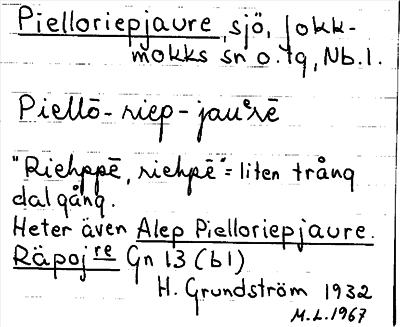 Pielloriepjaure, sjö, Jokk-
mokks sn o. tg, Nb. l.
Piellō - riep - jauᵉrē
"Riehppē, riehpē" = liten trång
dalgång.
Heter även Alep Pielloriepjaure.
Räpojʳᵉ Gn 13 (b1)
H. Grundström 1932
M.L. 1967